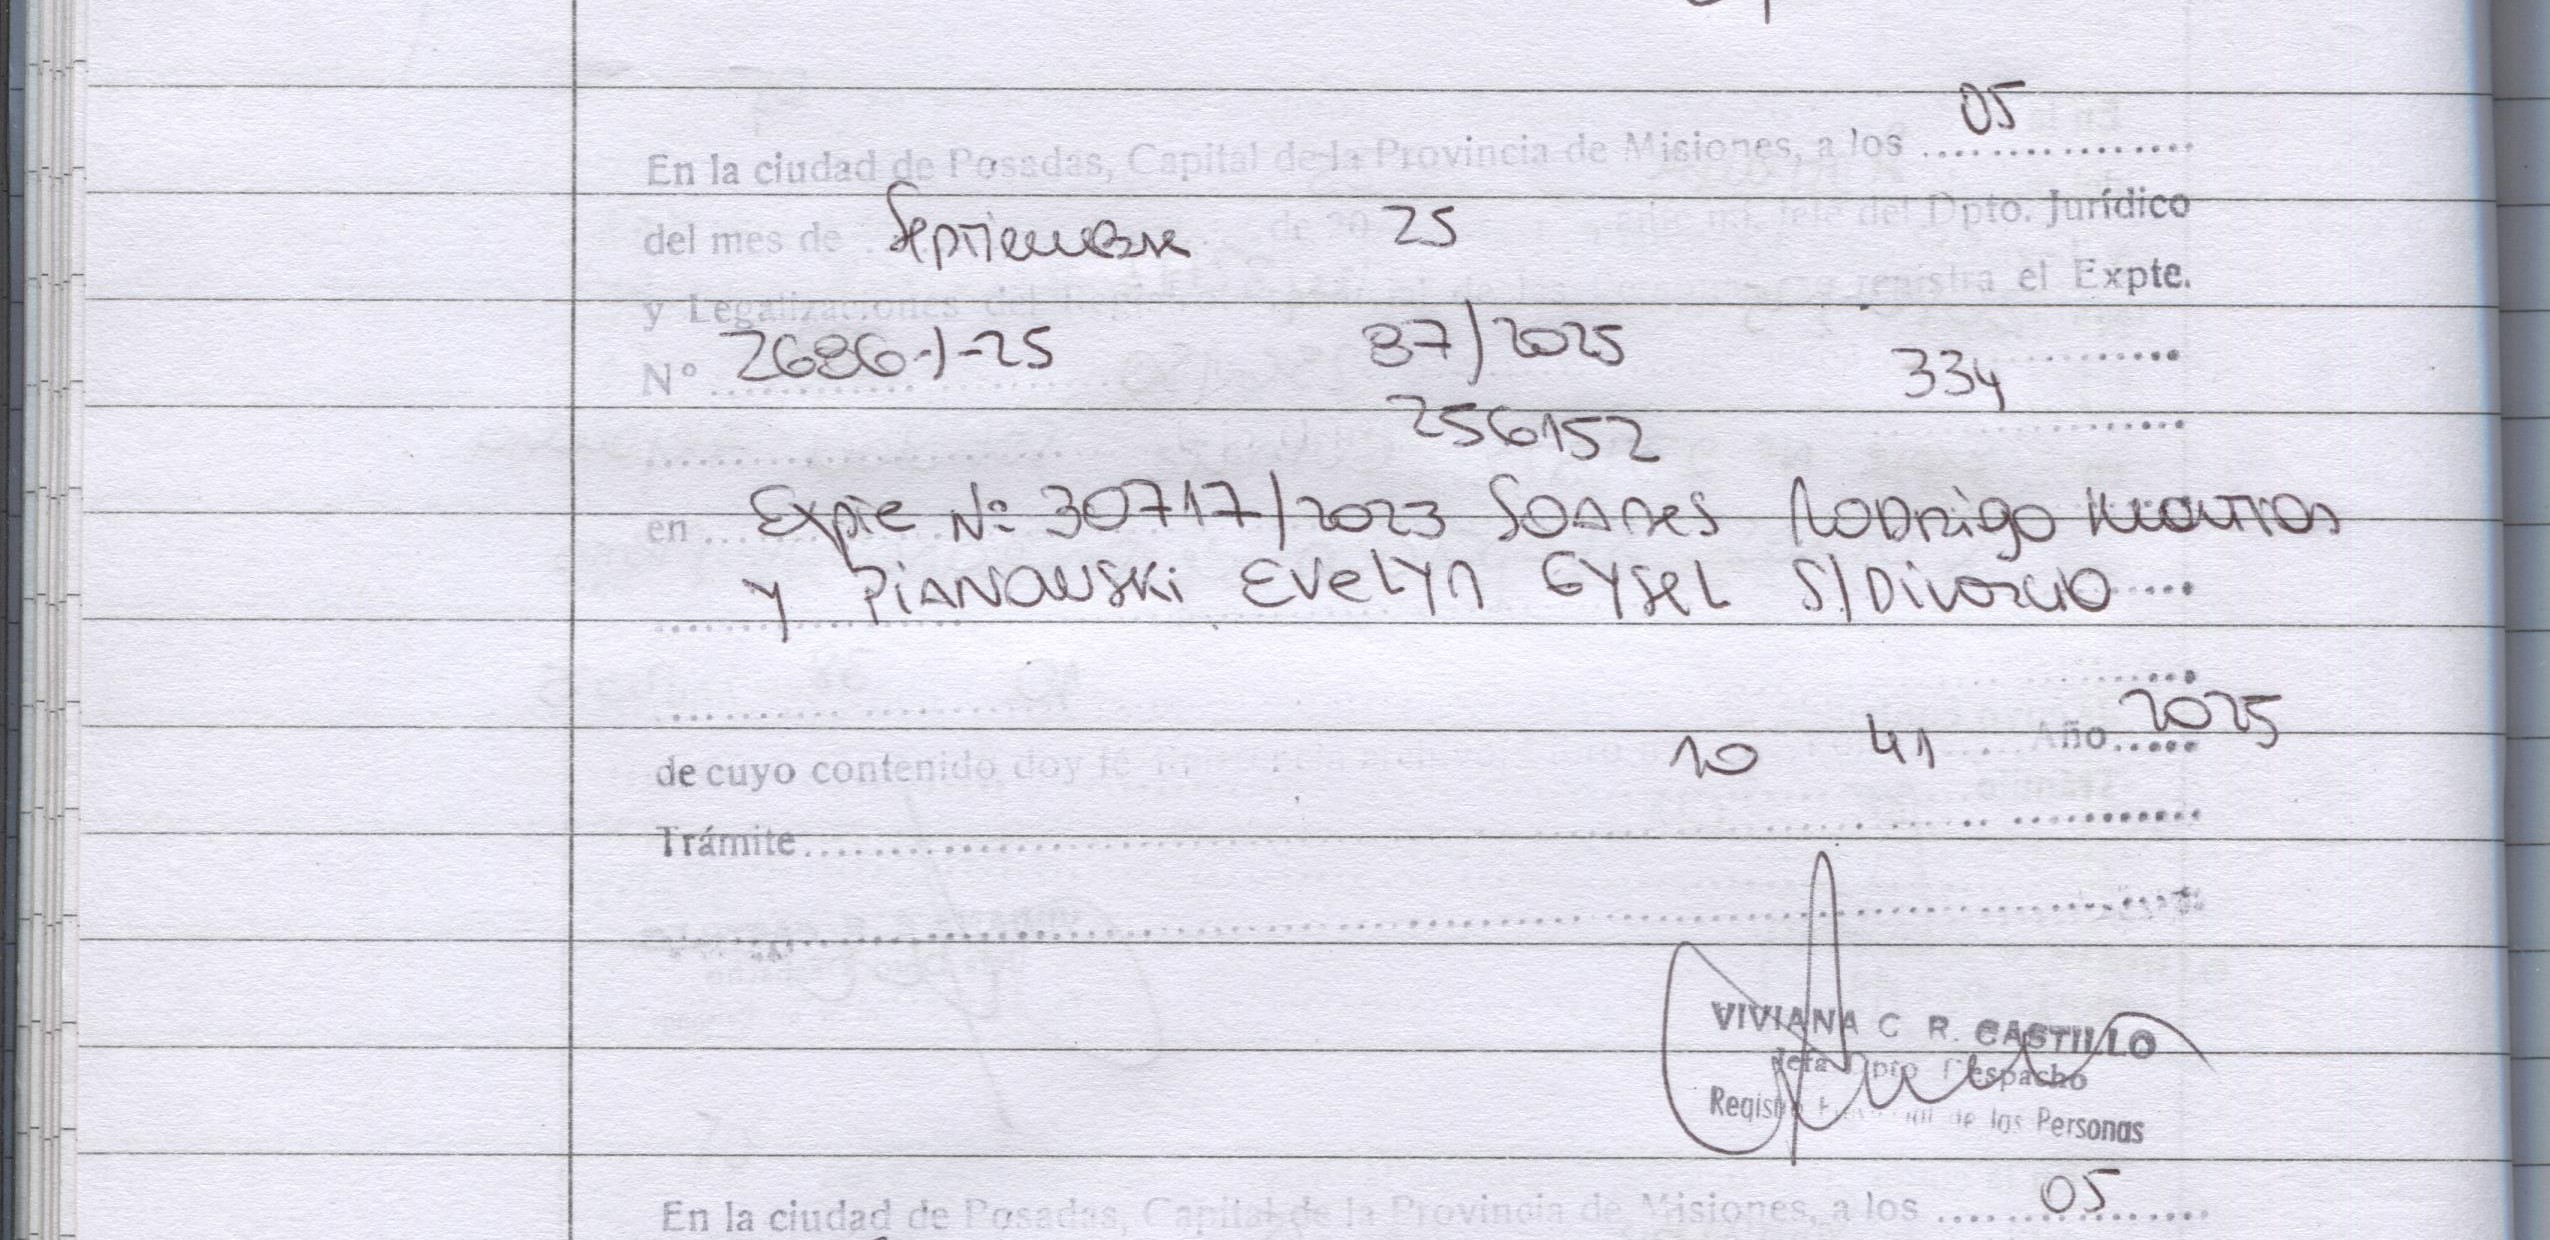 05
En la ciudad de Posadas, Capital de la Provincia de Misiones, a los ................
del mes de Septiembre de 20 25 Jefe del Dpto. Jurídico
y Legalizaciones del registra el Expte.
Nº 2686-1-25 87/2025 334
256152
en Expte Nº 30717/2023 Soares Rodrigo
y Pianowski Evelyn Gysel S/Divorcio
de cuyo contenido doy fé 10 41 Año 2025
Trámite
VIVIANA C R. CASTILLO
Jefa Dpto Despacho
Registro Provincial de las Personas
En la ciudad de Posadas, Capital de la Provincia de Misiones, a los 05